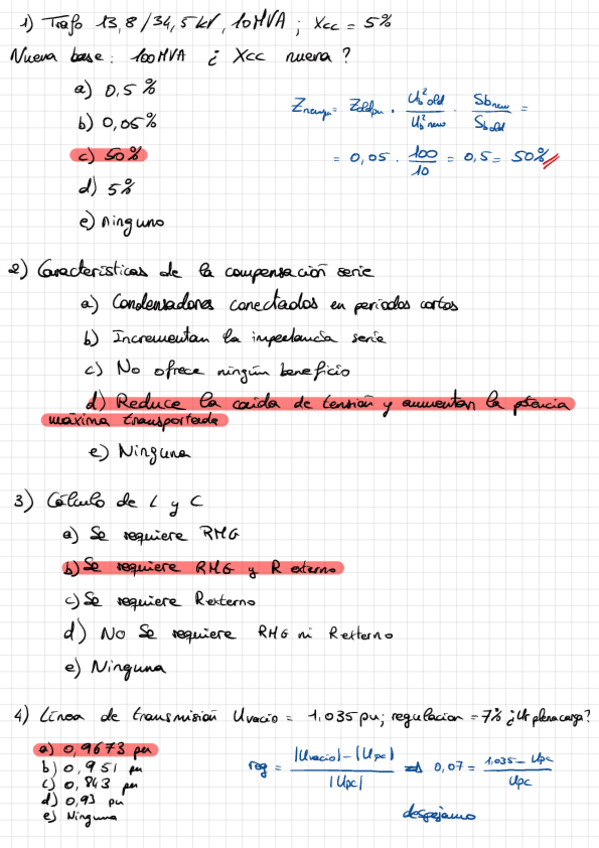 1) Trafo 13,8/34,5 kV, 10 MVA ; Xcc = 5%
Nueva base: 100 MVA ¿ Xcc nueva ?
a) 0,5 %
b) 0,05%
c) 50%
d) 5%
e) Ninguno
Znueva = Zoldpu · Ub²old / Ub²new · Sbnew / Sbold =
= 0,05 · 100/10 = 0,5 = 50%
2) Características de la compensación serie
a) Condensadores conectados en periodos cortos
b) Incrementan la impedancia serie
c) No ofrece ningún beneficio
d) Reduce la caída de tensión y aumentan la potencia
máxima transportada
e) Ninguna
3) Cálculo de L y C
a) Se requiere RMG
b) Se requiere RMG y R externo
c) Se requiere Rexterno
d) No Se requiere RMG ni Rexterno
e) Ninguna
4) Línea de transmisión Uvacío = 1,035 pu; regulacion = 7% ¿Ur plena carga?
a) 0,9673 pu
b) 0,951 pu
c) 0,843 pu
d) 0,93 pu
e) Ninguno
reg = |Uvacío| - |Upc| / |Upc| ⇒ 0,07 = 1,035 - Upc / Upc
despejamo